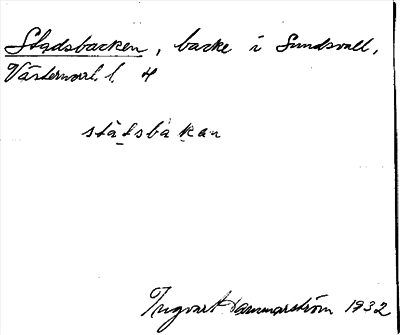 Stadsbacken, backe i Sundsvall,
Västernorrl. l. 4
stàtsbàkan
Ingvart Hammarström 1932